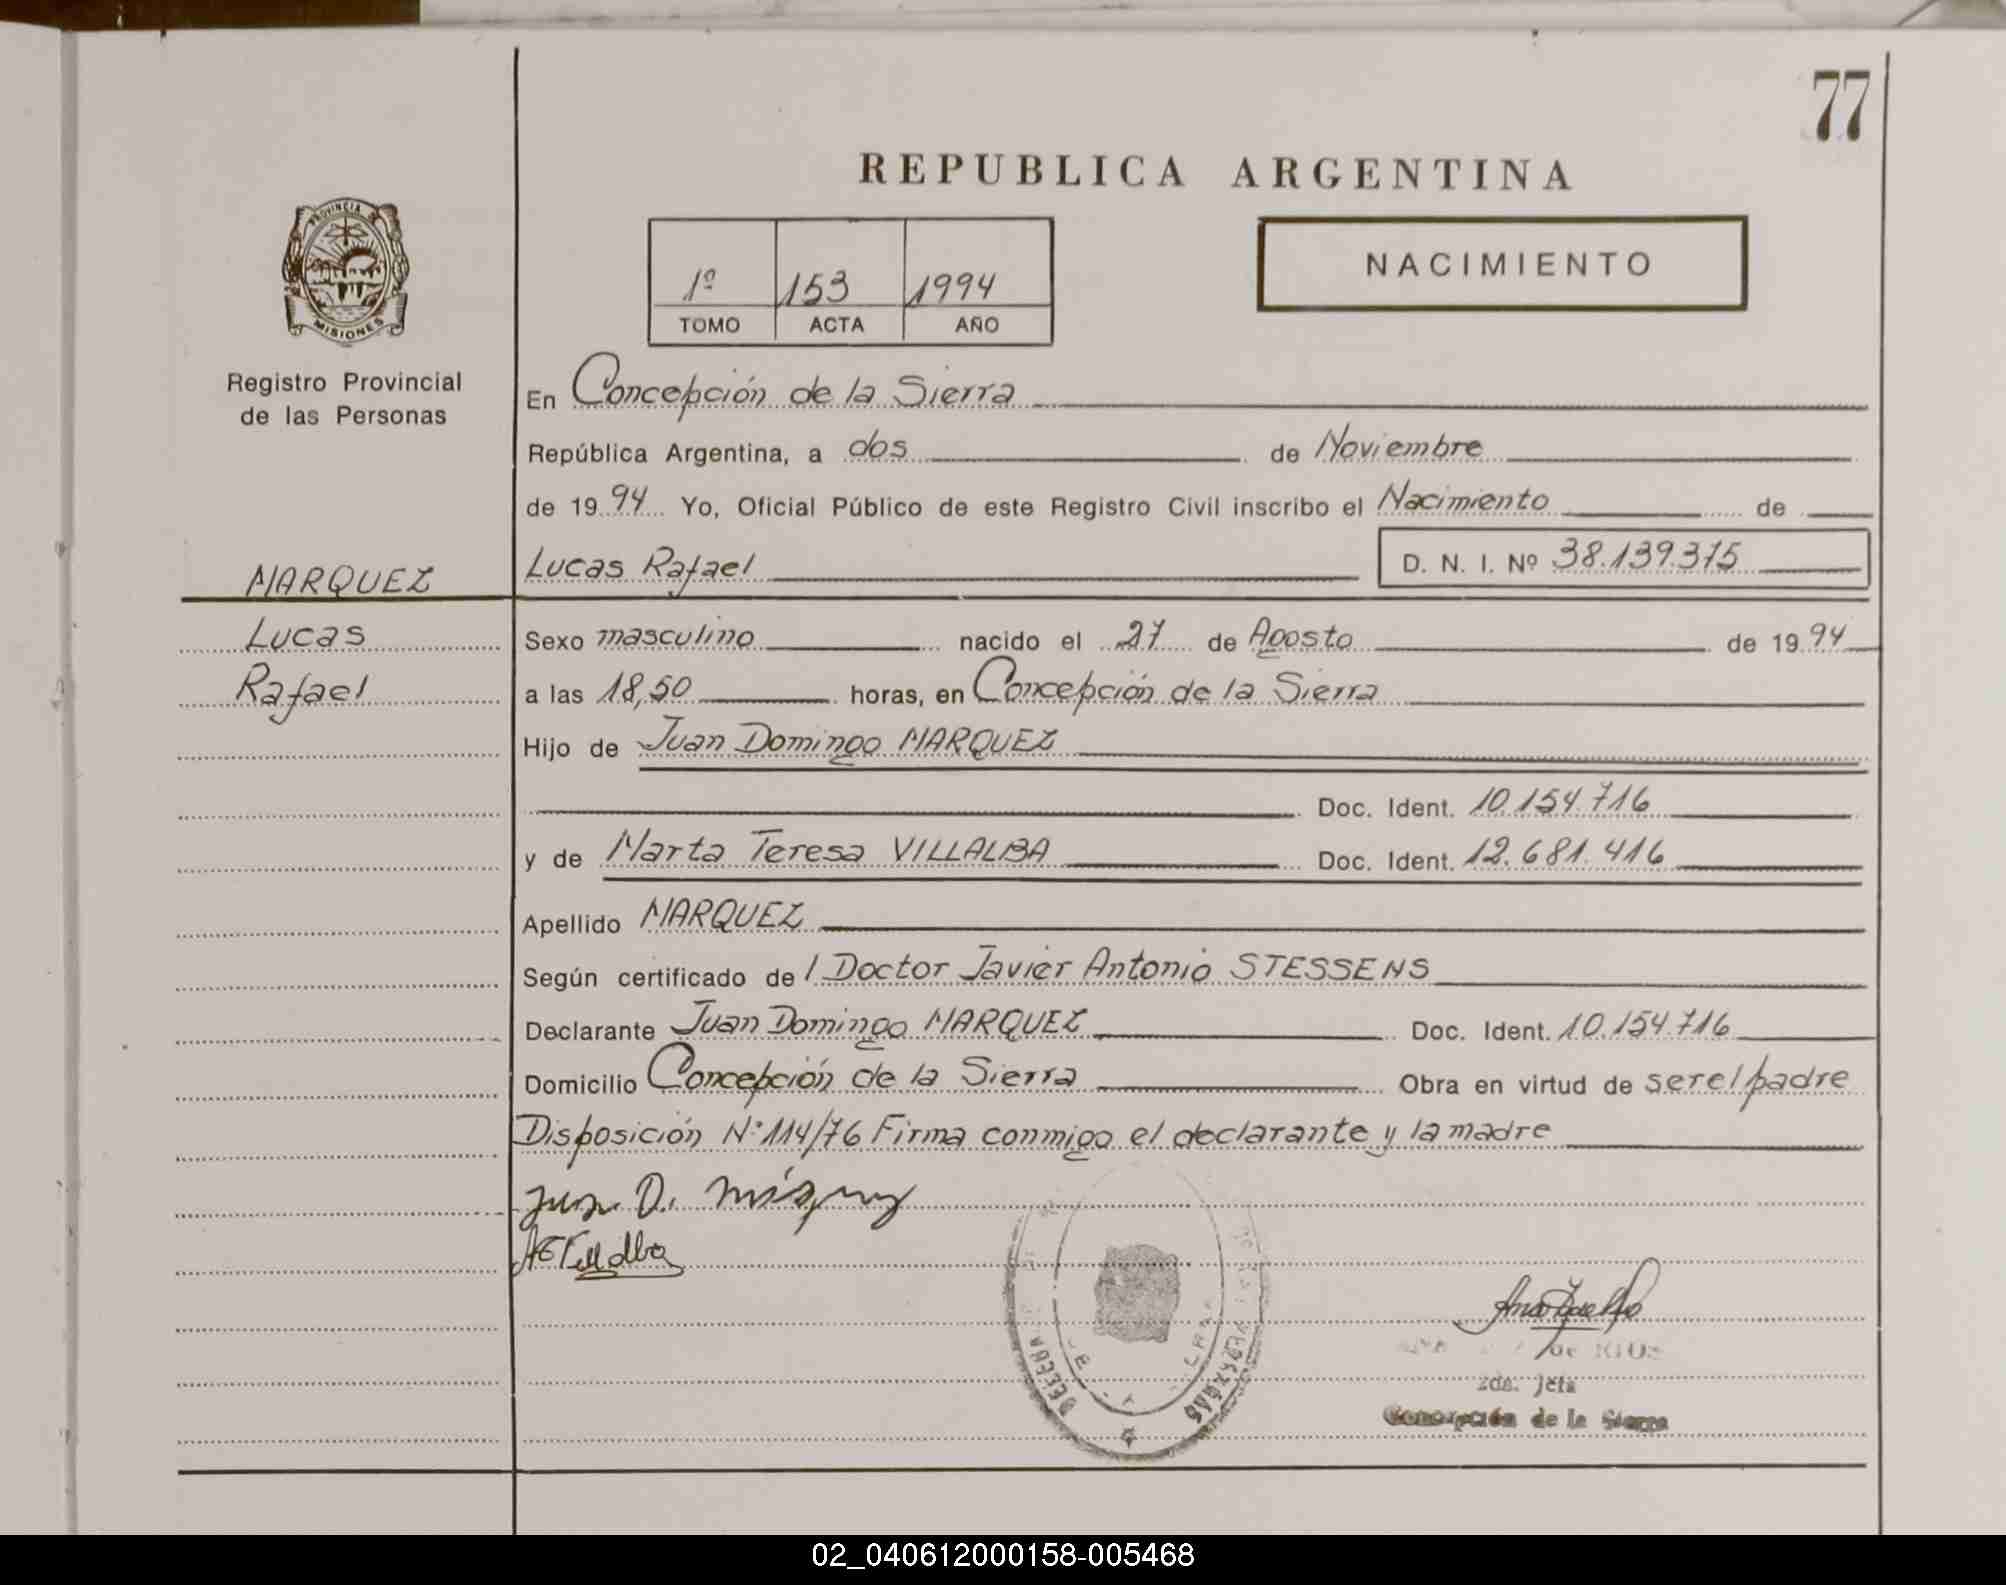 77
REPUBLICA ARGENTINA
PROVINCIA DE
MISIONES
Registro Provincial
de las Personas
1º 153 1994
TOMO ACTA AÑO
NACIMIENTO
En Concepción de la Sierra
República Argentina, a dos de Noviembre
de 1994 Yo, Oficial Público de este Registro Civil inscribo el Nacimiento de
MARQUEZ
Lucas Rafael D. N. I. Nº 38.139.375
Lucas
Rafael
Sexo masculino nacido el 27 de Agosto de 1994
a las 18,50 horas, en Concepción de la Sierra
Hijo de Juan Domingo MARQUEZ
Doc. Ident. 10.154.716
y de Marta Teresa VILLALBA Doc. Ident. 12.681.416
Apellido MARQUEZ
Según certificado de l Doctor Javier Antonio STESSENS
Declarante Juan Domingo MARQUEZ Doc. Ident. 10.154.716
Domicilio Concepción de la Sierra Obra en virtud de ser el padre
Disposición N° 114/76 Firma conmigo el declarante y la madre
Juan D.
de RIOS
2da. Jefa
Concepción de la Sierra
02_040612000158-005468